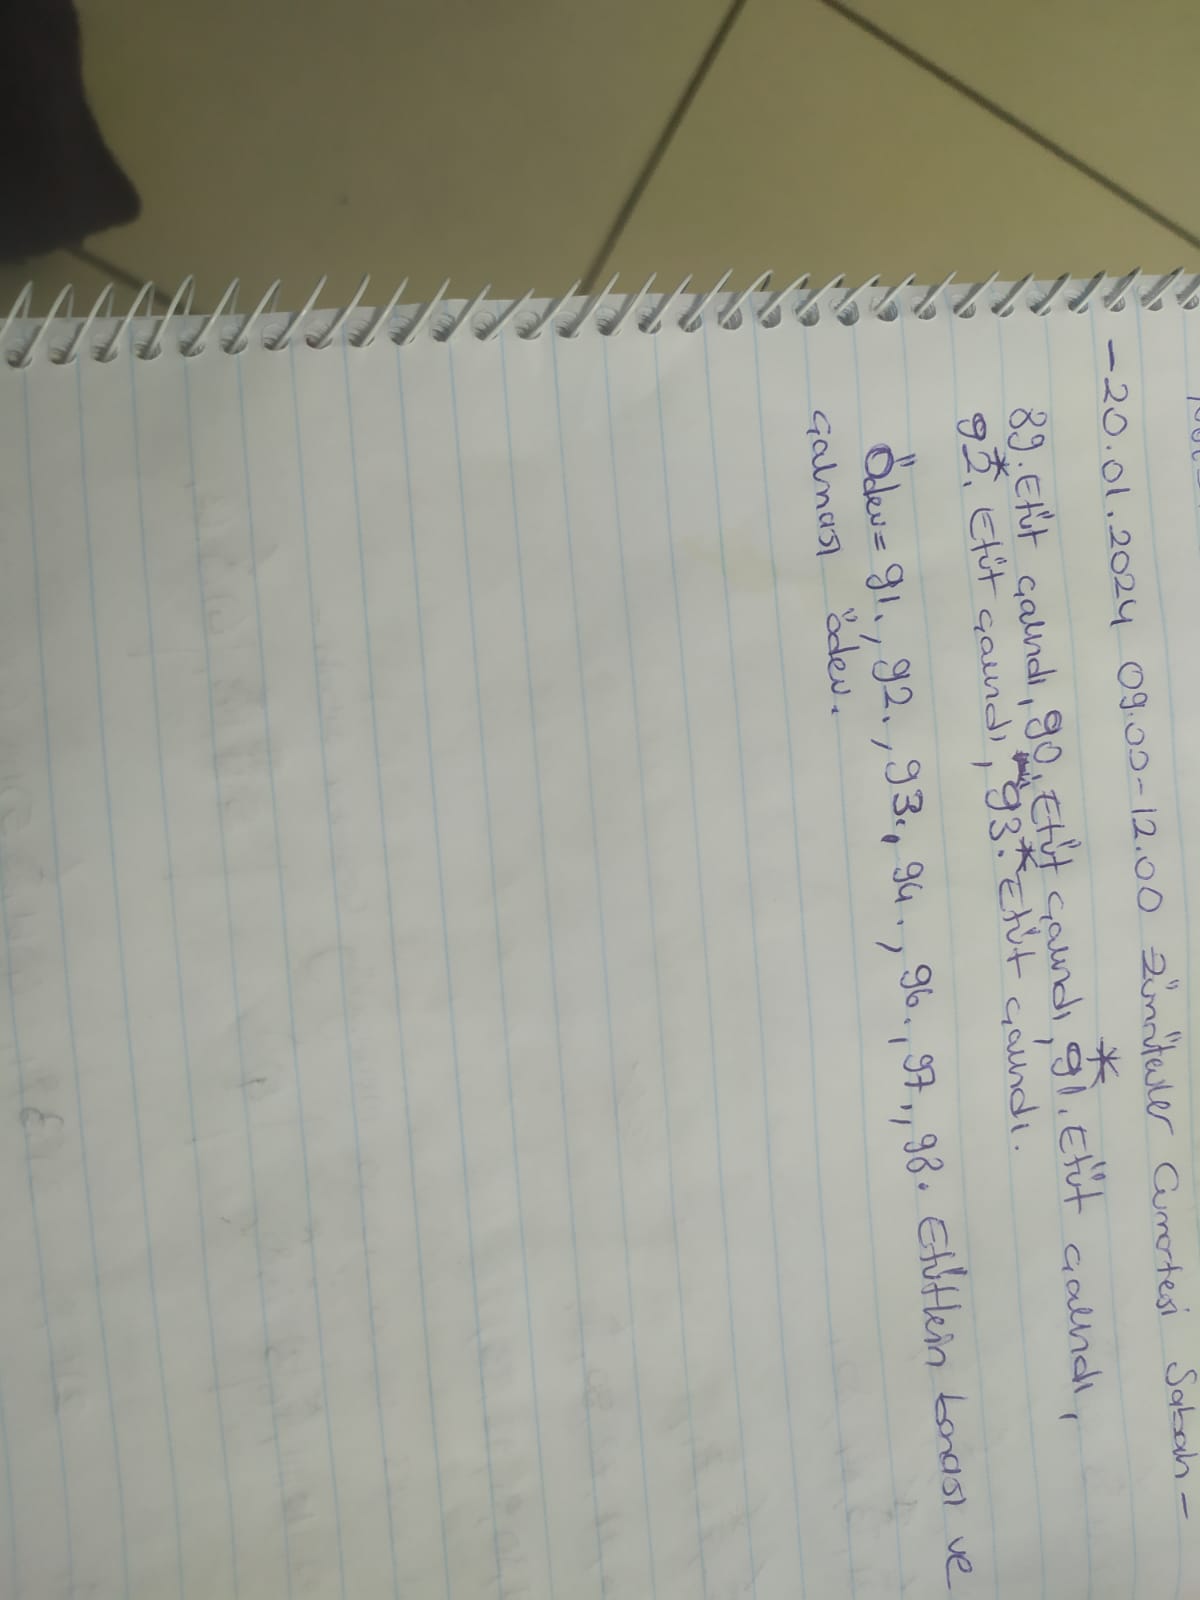 -20.01.2024 09.00-12.00 Zümrütevler Cumartesi Sabah-
89. Etüt çalındı, 90. Etüt çalındı, 91.* Etüt çalındı,
92.* Etüt çalındı, 93.* Etüt çalındı.
Ödev= 91., 92., 93., 94., 96., 97., 98. Etütlerin bonası ve
çalması ödev.